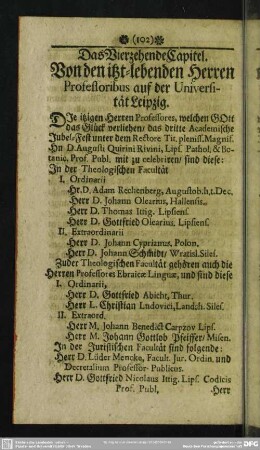 (102)
Das Vierzehende Capitel.
Von den itzt-lebenden Herren
Profeſſoribus auf der Univerſi-
tät Leipzig.
DIe itzigen Herren Profeſſores, welchen GOtt
das Glück verliehen/ das dritte Academiſche
Jubel-Feſt unter dem Rectore Tit. pleniſſ. Magnif.
Hn D. Auguſti Quirini Rivini, Lipſ. Pathol. & Bo-
tanic. Prof. Publ. mit zu celebriren/ ſind dieſe:
In der Theologiſchen Facultät
I. Ordinarii
Hr. D. Adam Rechenberg, Auguſtob. h. t. Dec.
Herr D. Johann Olearius, Hallenſis.
Herr D. Thomas Ittig. Lipſienſ.
Herr D. Gottfried Olearius, Lipſienſ.
II. Extraordinarii
Herr D. Johann Cyprianus, Polon.
Herr D. Johann Schmidt/ Wratisl. Sileſ.
Zu der Theologiſchen Facultät gehören auch die
Herren Profeſſores Ebraicæ Linguæ, und ſind dieſe
I. Ordinarii,
Herr D. Gottfried Abicht, Thur.
Herr L. Chriſtian Ludovici, Landsh. Sileſ.
II. Extraord.
Herr M. Johann Benedict Carpzov Lipſ.
Herr M. Johann Gottlob Pfeiffer/ Miſen.
In der Juriſtiſchen Facultät ſind folgende:
Herr D. Lüder Mencke, Facult. Jur. Ordin. und
Decretalium Profeſſor Publicus.
Herr D. Gottfried Nicolaus Ittig. Lipſ. Codicis
Prof. Publ,
Herr